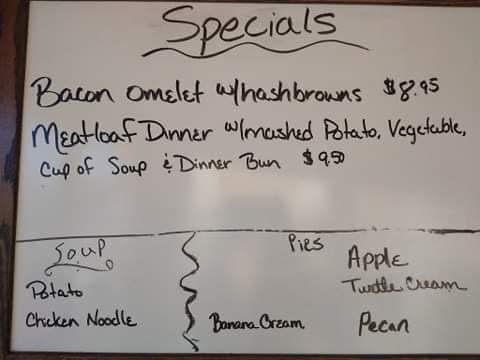 Specials
Bacon omelet w/hashbrowns $8.95
Meatloaf Dinner w/mashed Potato, Vegetable,
Cup of Soup & Dinner Bun $9.50
Soup
Potato
Chicken Noodle
Pies
Apple
Turtle Cream
Banana Cream
Pecan